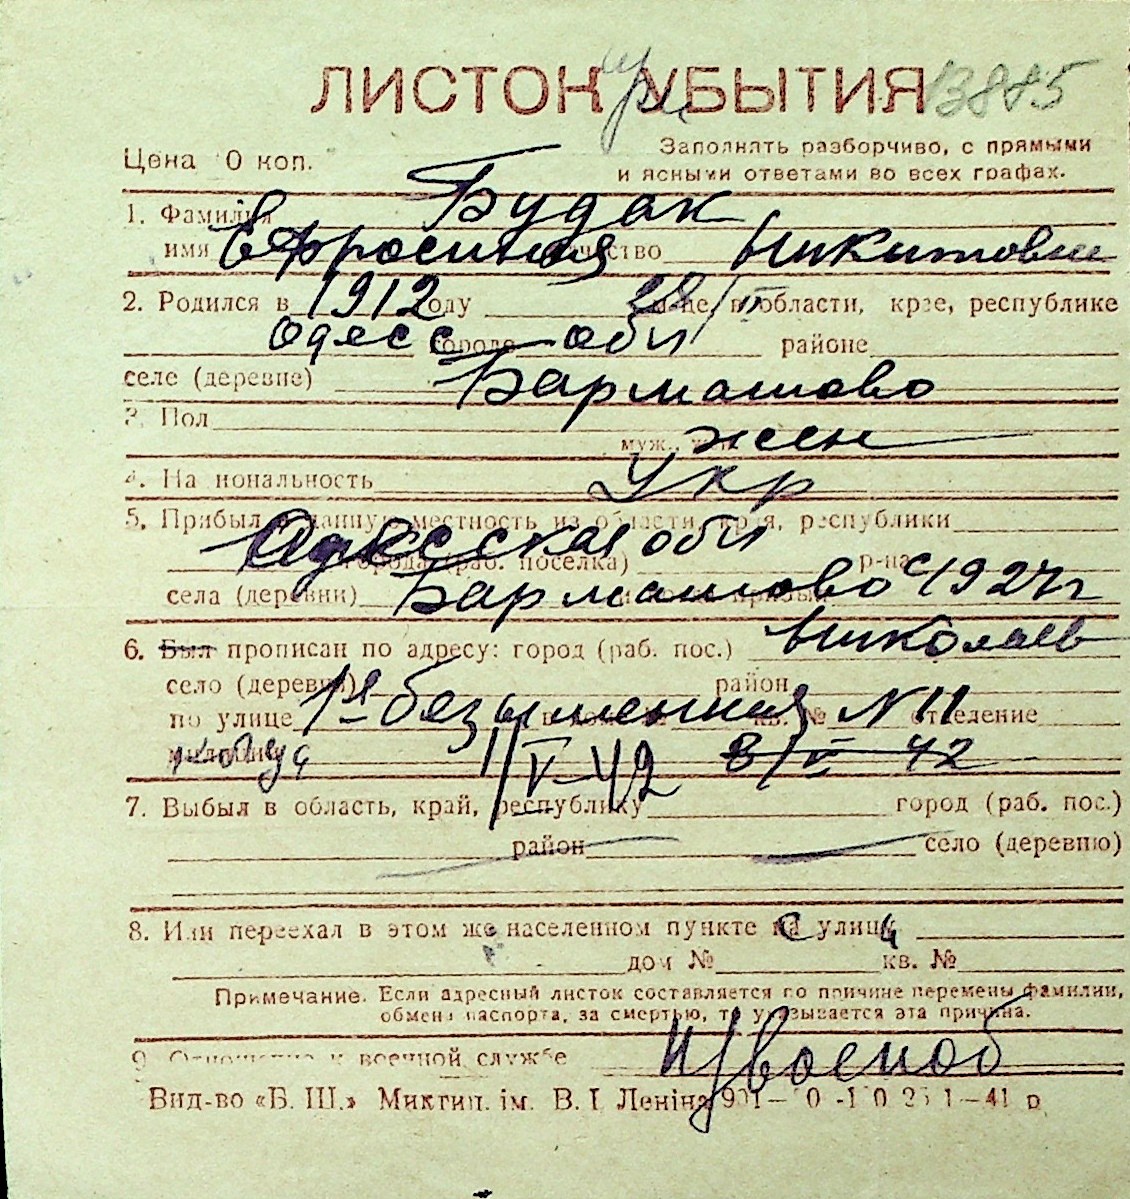 ЛИСТОК УБЫТИЯ 13885
Цена 0 коп.
Заполнять разборчиво, с прямыми
и ясными ответами во всех графах.
1. Фамилия Будак
имя Ефросиния отчество Никитовн
2. Родился в 1912 году 28/II м-це, в области, крае, республике
Одесс городе обл районе
селе (деревне) Бармашово
3. Пол жен
муж., жен.
4. Национальность Укр
5. Прибыл в данную местность из области, края, республики
Одесская обл
города (раб. поселка) р-на
села (деревни) Бармашово с 1927 г
6. Был прописан по адресу: город (раб. пос.) Николаев
село (деревня) район
по улице 1я безыменная N 11 отделение
милиции 1/V-42 8/V 42
7. Выбыл в область, край, республику город (раб. пос.)
район село (деревню)
8. Или переехал в этом же населенном пункте на улицу
дом № кв. №
Примечание. Если адресный листок составляется по причине перемены фамилии,
обмена паспорта, за смертью, то указывается эта причина.
9. Отношение к военной службе н/военоб
Вид-во «Б. Ш.» Миктип. ім. В. І Леніна